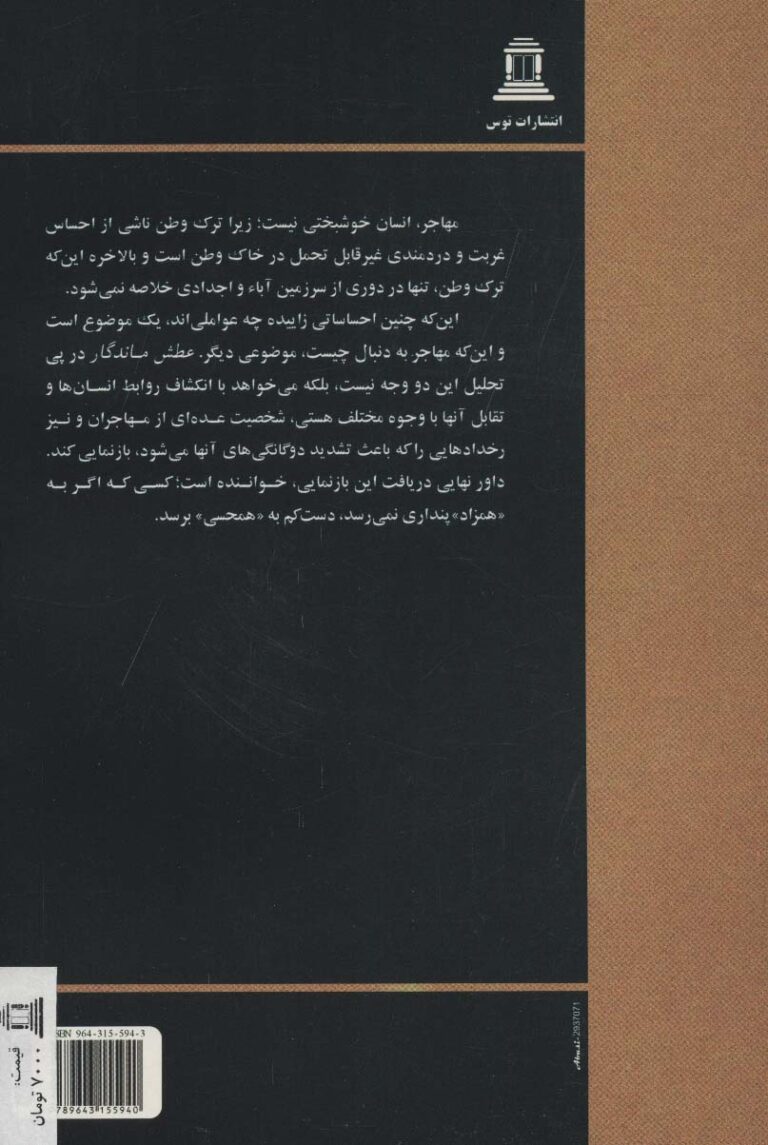 انتشارات توس
مهاجر، انسان خوشبختی نیست؛ زیرا ترک وطن ناشی از احساس
غربت و دردمندی غیرقابل تحمل در خاک وطن است و بالاخره این‌که
ترک وطن، تنها در دوری از سرزمین آباء و اجدادی خلاصه نمی‌شود.
این‌که چنین احساساتی زاییده چه عواملی‌اند، یک موضوع است
و این‌که مهاجر به دنبال چیست، موضوعی دیگر. عطش ماندگار در پی
تحلیل این دو وجه نیست، بلکه می‌خواهد با انکشاف روابط انسان‌ها و
تقابل آنها با وجوه مختلف هستی، شخصیت عده‌ای از مهاجران و نیز
رخدادهایی را که باعث تشدید دوگانگی‌های آنها می‌شود، بازنمایی کند.
داور نهایی دریافت این بازنمایی، خواننده است؛ کسی که اگر به
«همزاد» پنداری نمی‌رسد، دست‌کم به «همحسی» برسد.
2937071
ISBN 964-315-594-3
789643 155940
قیمت:
۷۰۰۰ تومان